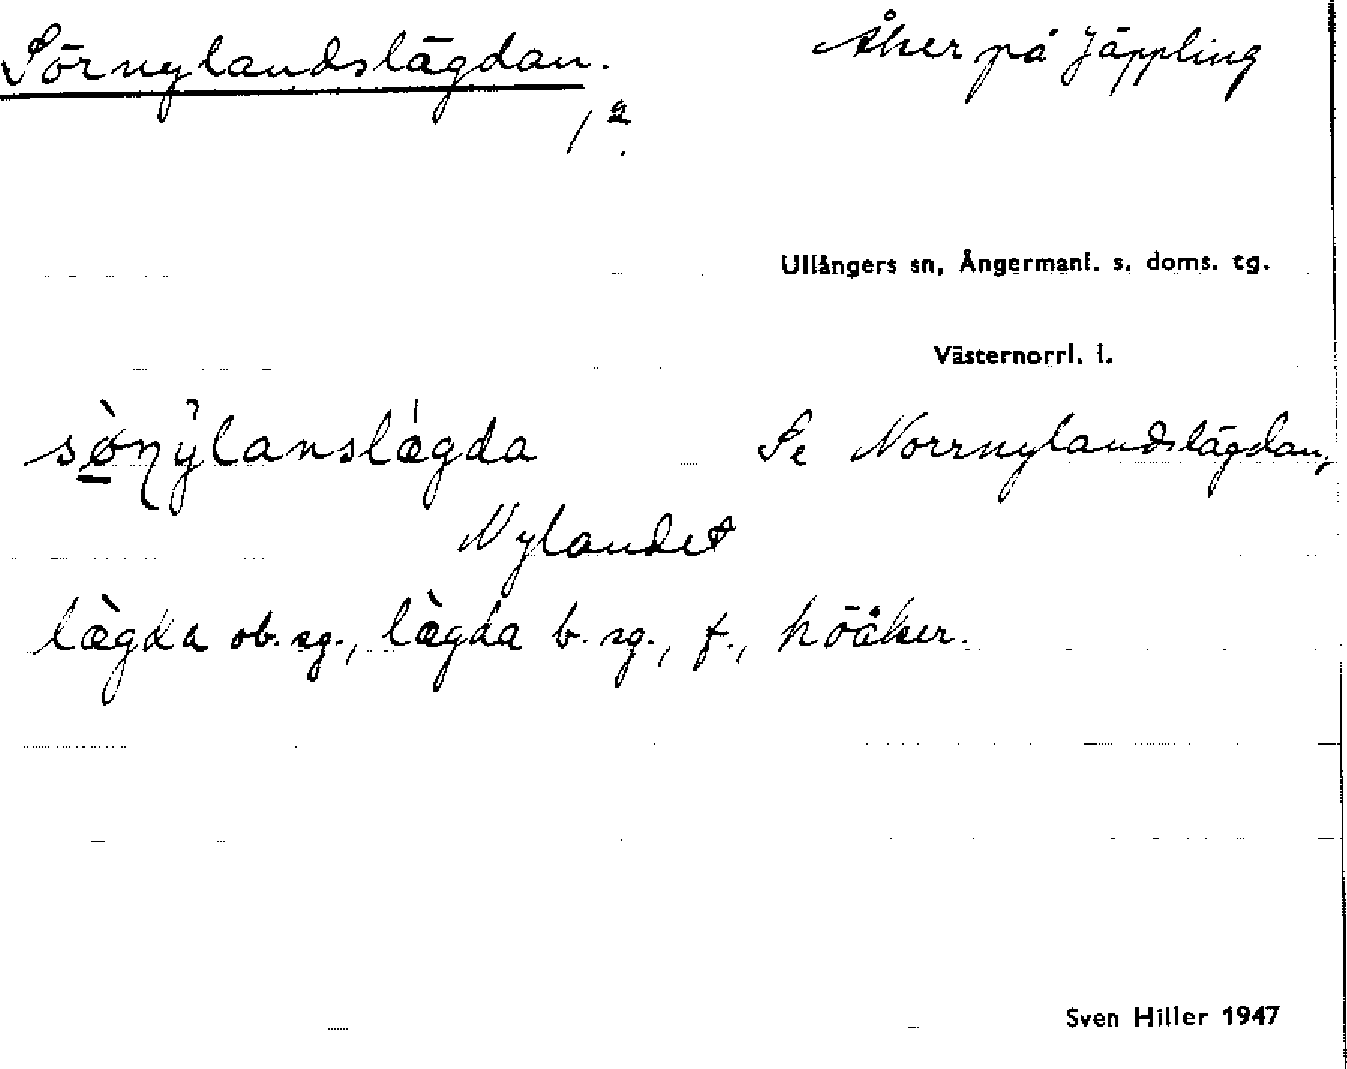 Sörnylandslägdan. Åker på Jäppling
1a.
Ullångers sn, Ångermanl. s. doms. tg.
Västernorrl. l.
sǿ̀ɳy̌lanslǽgda Se Norrnylandslägdan,
Nylandet
læ̀gda ob. sg., læ̀gda b. sg., f., höåker.
Sven Hiller 1947